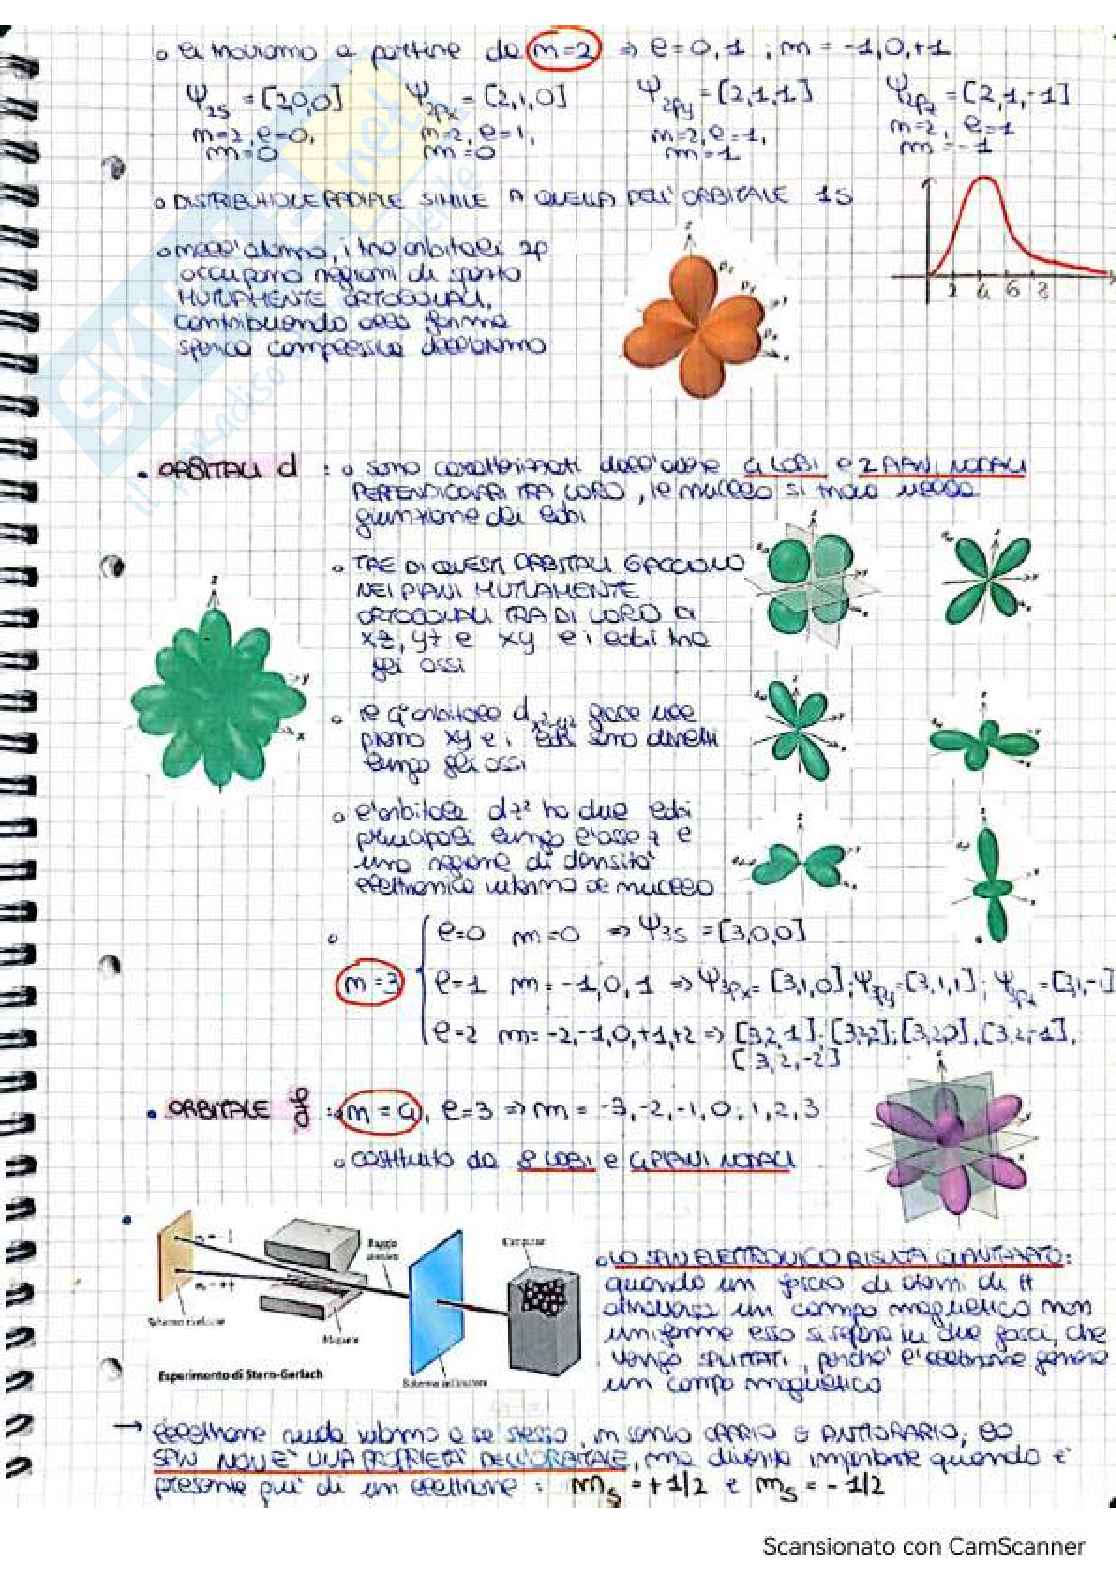 o li troviamo a partire da n=2 => l=0,1 ; m = -1,0,+1
Ψ2s = [2,0,0] Ψ2px = [2,1,0] Ψ2py = [2,1,1] Ψ2pz = [2,1,-1]
n=2, l=0, n=2, l=1, n=2, l=1, n=2, l=1
m=0 m=0 m=1 m=-1
o DISTRIBUZIONE RADIALE SIMILE A QUELLA DELL'ORBITALE 1S
o nell'atomo, i tre orbitali 2p
occupano regioni di spazio
MUTUAMENTE ORTOGONALI,
contribuendo alla forma
sferica complessiva dell'atomo
2 4 6 8
• ORBITALI d : o sono caratterizzati dall'avere 4 LOBI e 2 PIANI NODALI
PERPENDICOLARI TRA LORO, il nucleo si trova nella
giunzione dei lobi
o TRE DI QUESTI ORBITALI GIACCIONO
NEI PIANI MUTUAMENTE
ORTOGONALI TRA DI LORO
xz, yz e xy e i lobi tra
gli assi
o il 4° orbitale dx²-y² giace nel
piano xy e i lobi sono diretti
lungo gli assi
o l'orbitale dz² ha due lobi
principali lungo l'asse z e
una regione di densità
elettronica intorno al nucleo
o n=3
l=0 m=0 => Ψ3s = [3,0,0]
l=1 m=-1,0,1 => Ψ3px = [3,1,0]; Ψ3py = [3,1,1]; Ψ3pz = [3,1,-1]
l=2 m=-2,-1,0,+1,+2 => [3,2,1]; [3,2,2]; [3,2,0], [3,2,-1],
[3,2,-2]
• ORBITALE f : n=4, l=3 => m = -3,-2,-1,0,1,2,3
o COSTITUITO DA 8 LOBI e 4 PIANI NODALI
Raggio
Magnete
Esperimento di Stern-Gerlach
o LO SPIN ELETTRONICO RISULTA QUANTIZZATO:
quando un fascio di atomi di H
attraversa un campo magnetico non
uniforme esso si separa in due fasci, che
vengo SPLITTATI, perché l'elettrone genera
un campo magnetico
→ l'elettrone ruota intorno a se stesso, in senso ORARIO o ANTIORARIO; LO
SPIN NON E' UNA PROPRIETÀ DELL'ORBITALE, ma diventa importante quando è
presente più di un elettrone : ms = +1/2 e ms = -1/2
Scansionato con CamScanner